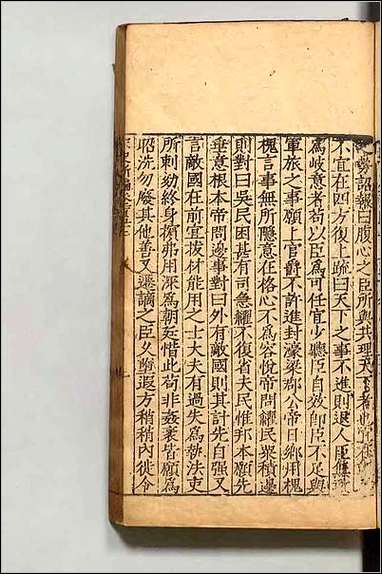 詔報曰腹心之臣所與共理天下者也宜在
不宜在四方復上疏曰天下之事不進則退人臣無
為岐意者苟以臣為可任宜少聽臣自效即臣不足與
軍旅之事願上官爵不許進封濠梁郡公帝日鄉用槐
槐言事無所隱意在格心不為容悅帝問糴民聚積邊
則對曰吳民困甚有司急糴不復省夫民惟邦本願先
垂意根本帝問邊事對曰外有敵國則其計先自强又
言敵國在前宜拔材能用之士大夫有過失為執法吏
所刺劾終身擯弗用深為朝廷惜此苟非姦衺皆願為
昭洗勿廢其他善又遷謫之臣久墮遐方稍稍內徙今